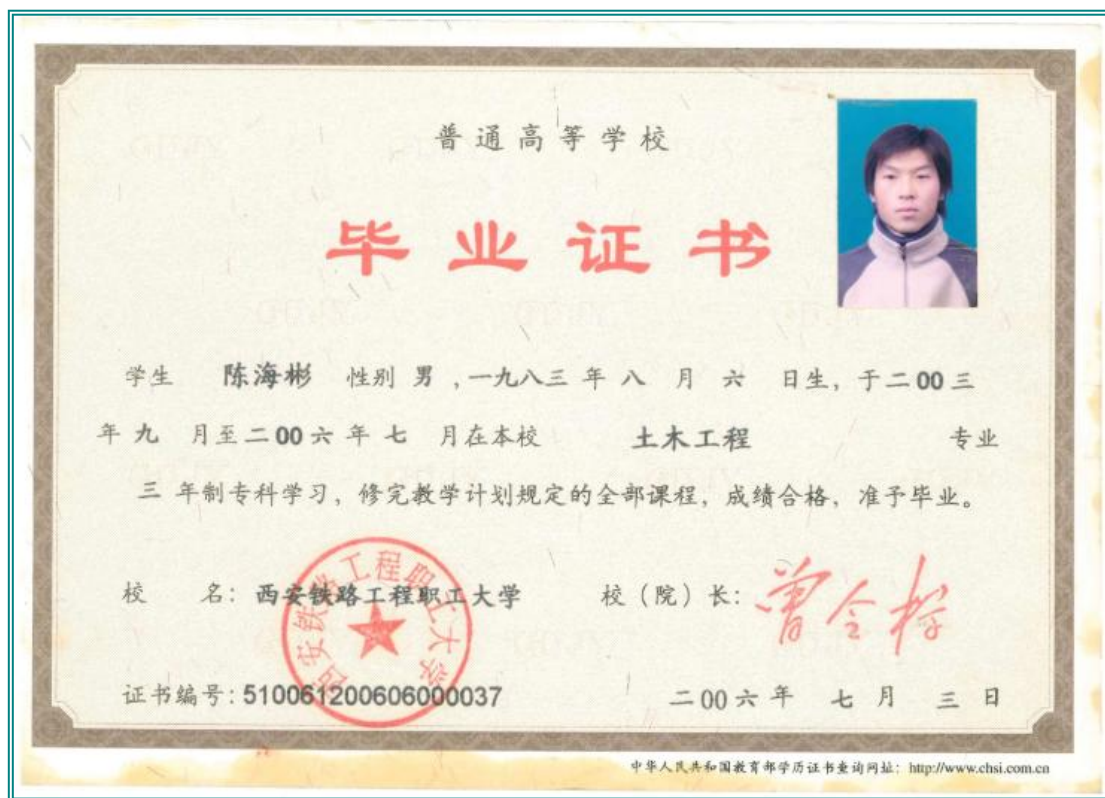 普通高等学校
毕业证书
学生 陈海彬 性别 男 ,一九八三 年 八 月 六 日生, 于二00三
年 九 月至二00六 年 七 月在本校 土木工程 专业
三 年制专科学习, 修完教学计划规定的全部课程, 成绩合格, 准予毕业。
校 名: 西安铁路工程职工大学 校（院）长:
西安铁路工程职工大学
证书编号: 510061200606000037 二00六 年 七 月 三 日
中华人民共和国教育部学历证书查询网址: http://www.chsi.com.cn